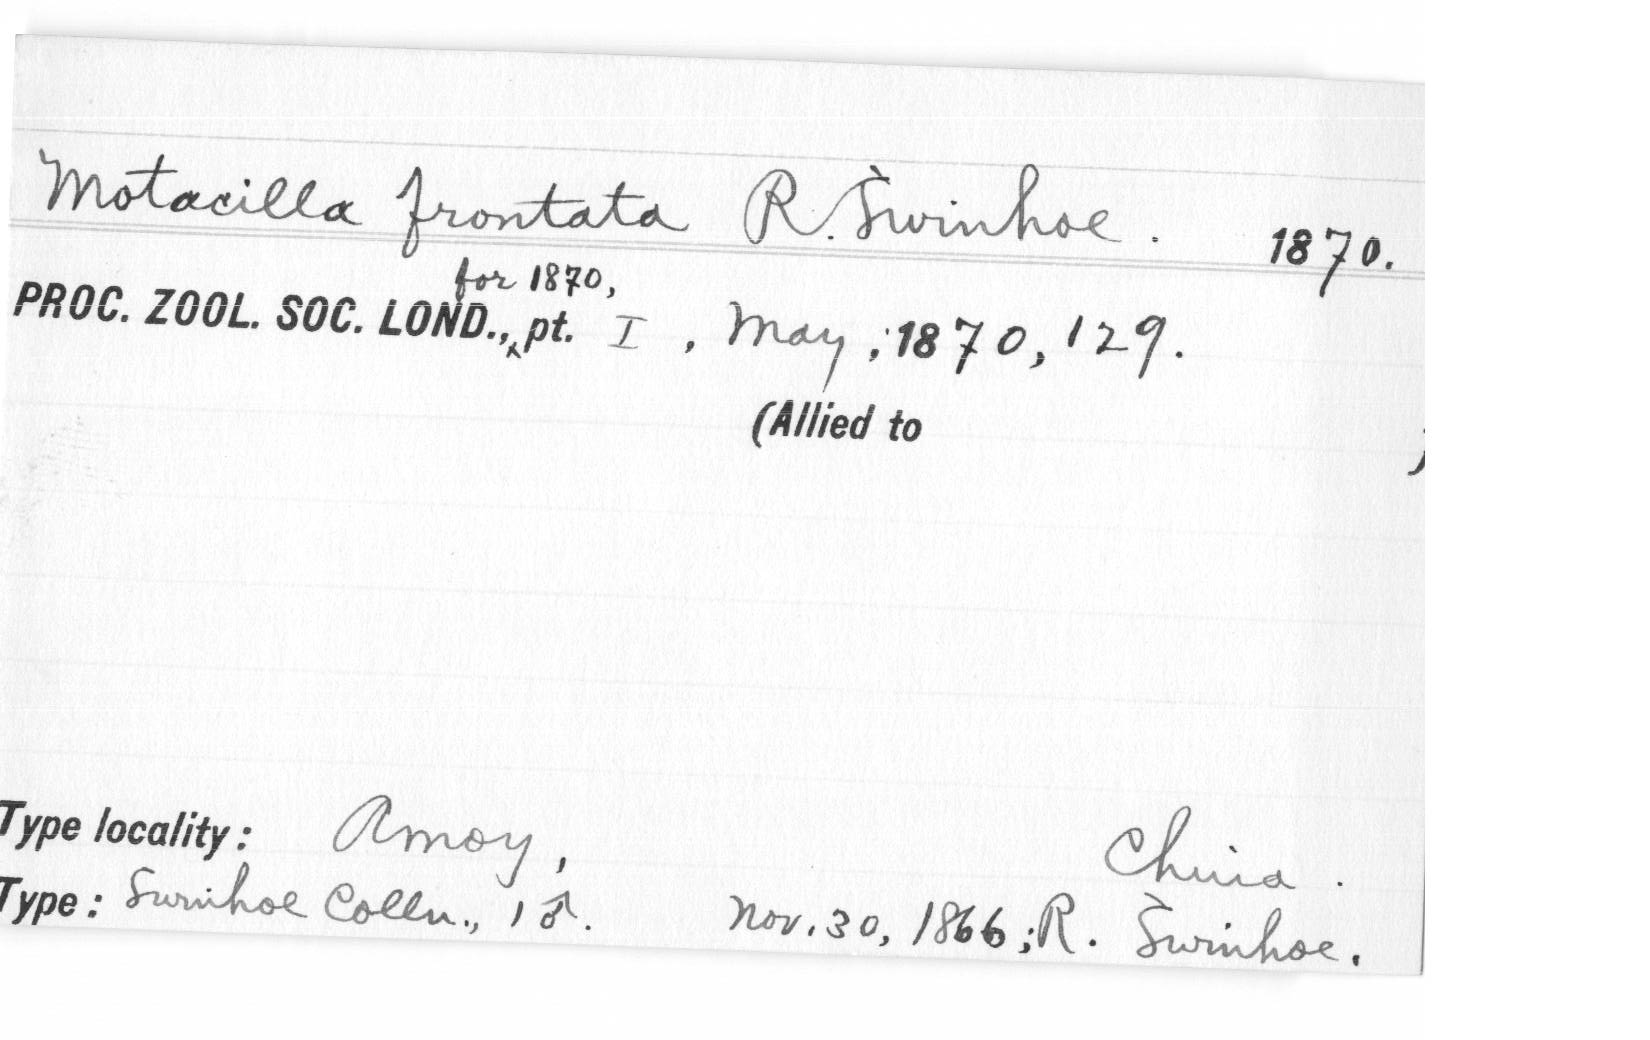 Motacilla frontata R. Swinhoe. 1870.
for 1870,
PROC. ZOOL. SOC. LOND., pt. I, May, 1870, 129.
(Allied to )
Type locality: Amoy, China.
Type: Swinhoe Colln., 1 ♂. Nov. 30, 1866; R. Swinhoe.